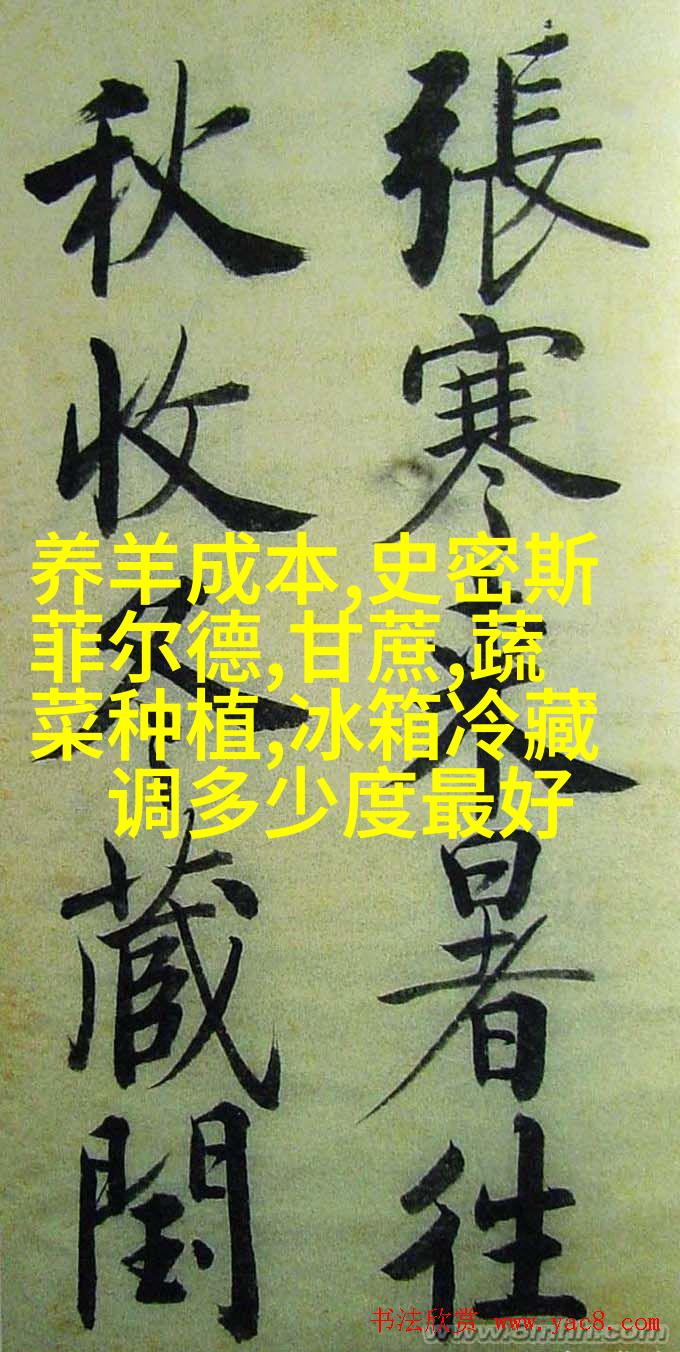 張寒来暑往
秋收冬藏閏
养羊成本,史密斯
菲尔德,甘蔗,蔬
菜种植,冰箱冷藏
调多少度最好
书法欣赏 www.yac8.com